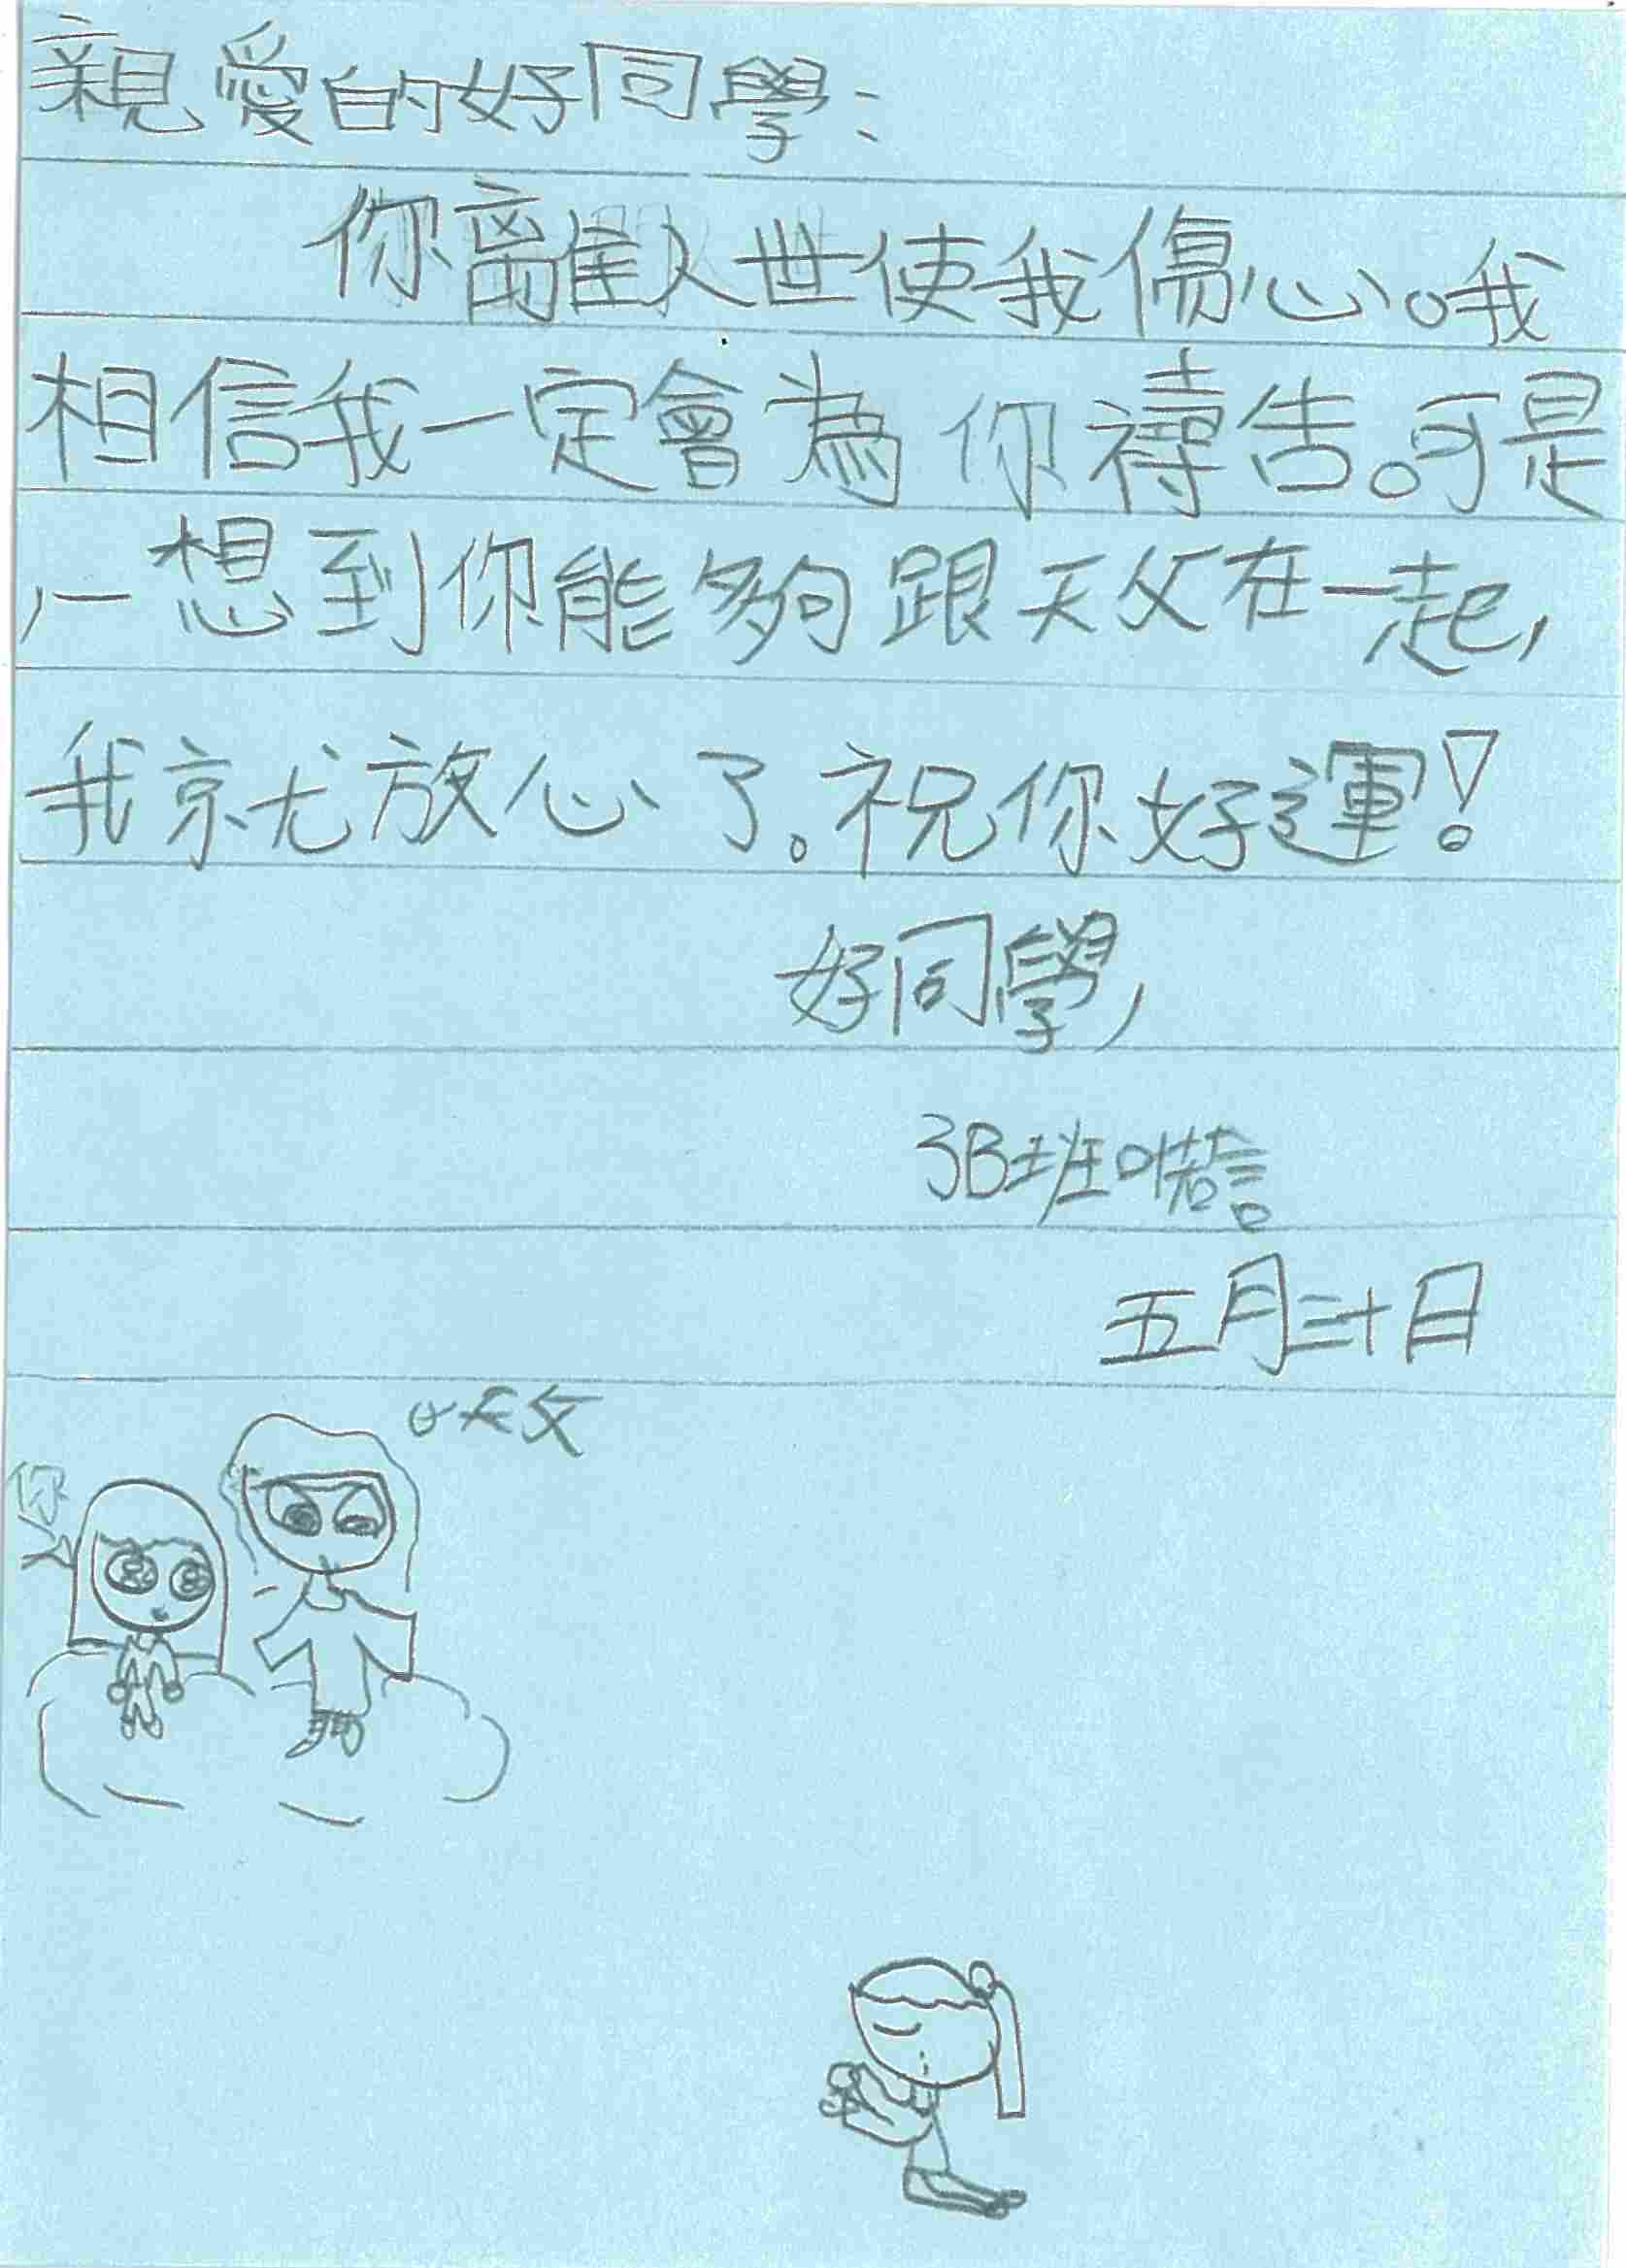 親愛的好同學：
你離人世使我傷心。我
相信我一定會為你禱告。可是
，一想到你能夠跟天父在一起，
我就放心了。祝你好運！
好同學，
3B班
五月三十日
天父
你